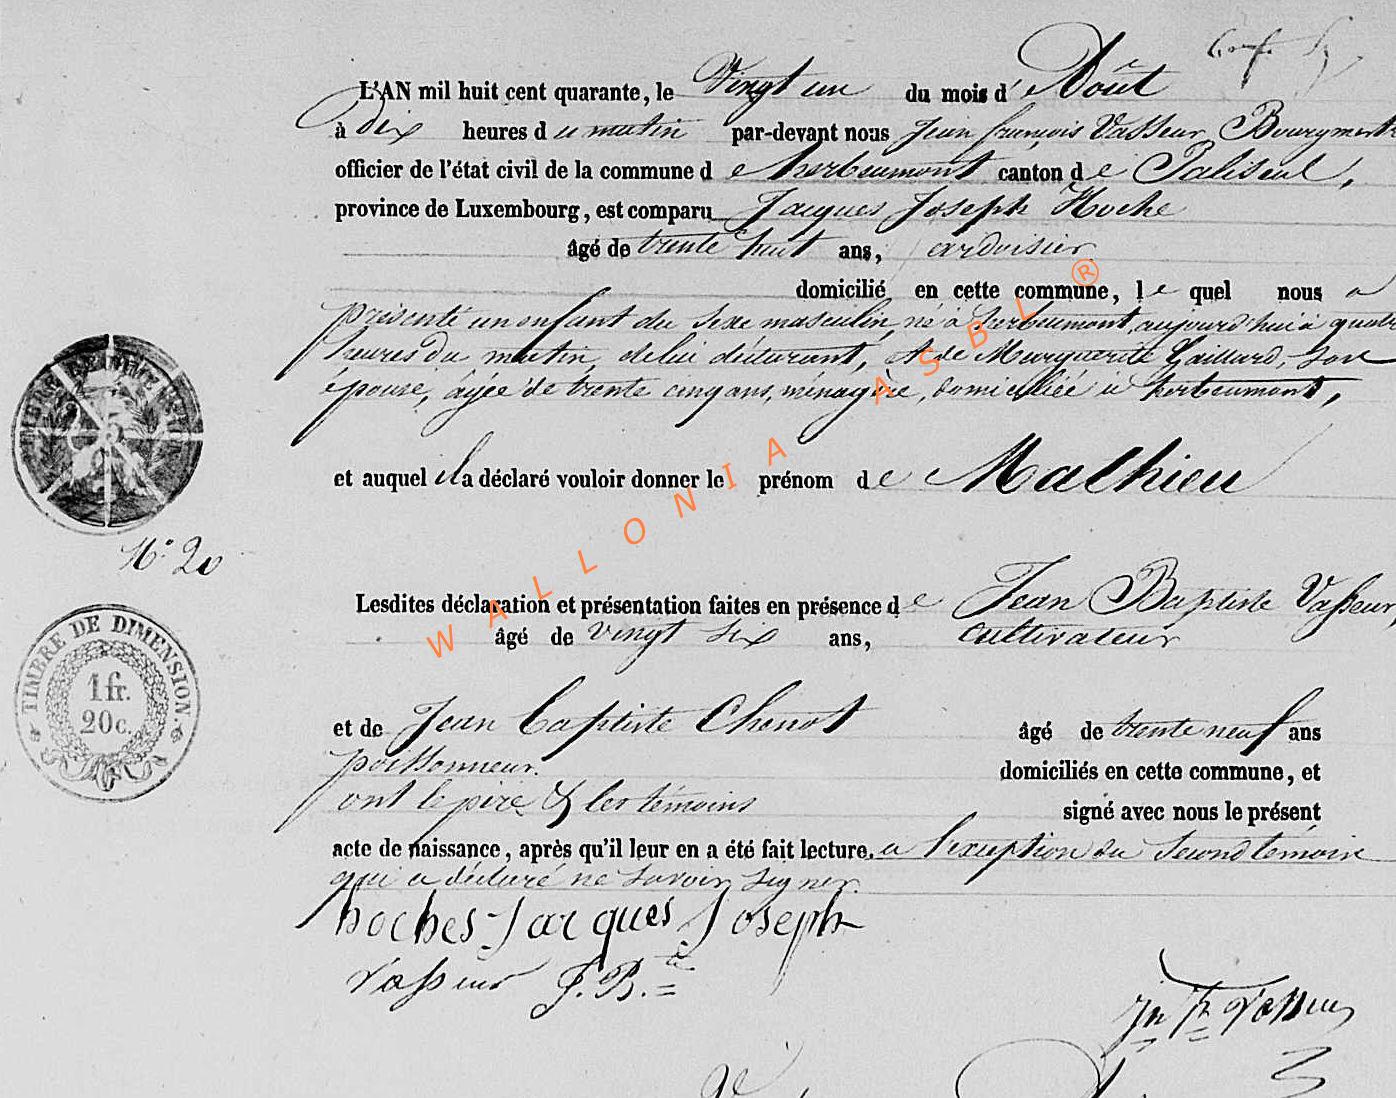 L'AN mil huit cent quarante, le Vingt un du mois d'Août
à dix heures du matin par-devant nous Jean françois Vasseur, Bourgmestre
officier de l'état civil de la commune de herbeumont canton de Paliseul,
province de Luxembourg, est comparu Jacques Joseph Hoche
âgé de trente huit ans, ardoisier
domicilié en cette commune, le quel nous a
présenté un enfant du sexe masculin, né à herbeumont, aujourd'hui à quatre
heures du matin, de lui déclarant, et de Marguerite Gaillard, son
épouse, âgée de trente cinq ans, ménagère, domiciliée à herbeumont,
et auquel il a déclaré vouloir donner le prénom de Mathieu
N.° 20
Lesdites déclaration et présentation faites en présence de Jean Baptiste Vasseur,
âgé de vingt six ans, cultivateur
TIMBRE DE DIMENSION.
1 fr.
20 c.
et de Jean baptiste Chenot âgé de trente neuf ans
poissonneur. domiciliés en cette commune, et
ont le père & les témoins signé avec nous le présent
acte de naissance, après qu'il leur en a été fait lecture, a l'exception du second témoin
qui a déclaré ne savoir signer.
hoches Jacques Joseph
Vasseur J. B.te
Jn fs Vasseur
WALLONIA ASBL ®